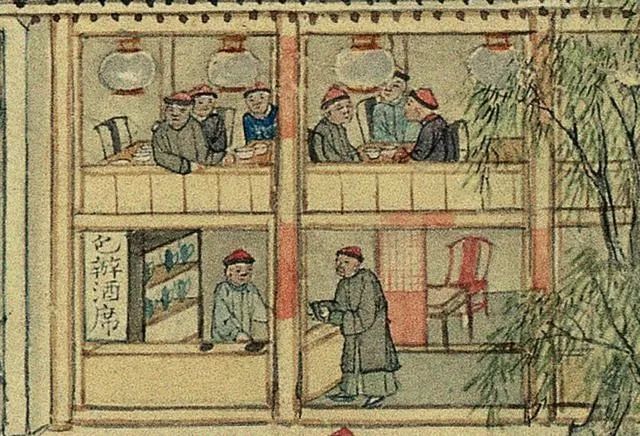 包辦酒席